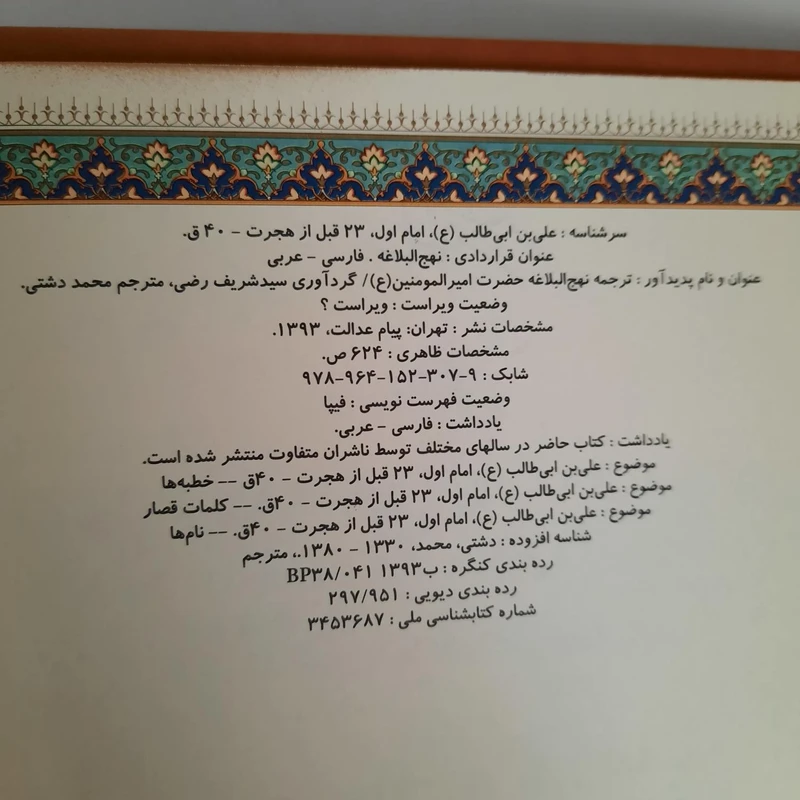 سرشناسه : علی‌بن ابی‌طالب (ع)، امام اول، ۲۳ قبل از هجرت - ۴۰ ق.
عنوان قراردادی : نهج‌البلاغه . فارسی - عربی
عنوان و نام پدیدآور : ترجمه نهج‌البلاغه حضرت امیرالمومنین(ع)/ گردآوری سیدشریف رضی، مترجم محمد دشتی.
وضعیت ویراست : ویراست ؟
مشخصات نشر : تهران: پیام عدالت، ۱۳۹۳.
مشخصات ظاهری : ۶۲۴ ص.
شابک : ۹-۳۰۷-۱۵۲-۹۶۴-۹۷۸
وضعیت فهرست نویسی : فیپا
یادداشت : فارسی - عربی.
یادداشت : کتاب حاضر در سالهای مختلف توسط ناشران متفاوت منتشر شده است.
موضوع : علی‌بن ابی‌طالب (ع)، امام اول، ۲۳ قبل از هجرت - ۴۰ق -- خطبه‌ها
موضوع : علی‌بن ابی‌طالب (ع)، امام اول، ۲۳ قبل از هجرت - ۴۰ق. -- کلمات قصار
موضوع : علی‌بن ابی‌طالب (ع)، امام اول، ۲۳ قبل از هجرت - ۴۰ق. -- نام‌ها
شناسه افزوده : دشتی، محمد، ۱۳۳۰ - ۱۳۸۰.، مترجم
رده بندی کنگره : ب۱۳۹۳ ۰۴۱/BP۳۸
رده بندی دیویی : ۲۹۷/۹۵۱
شماره کتابشناسی ملی : ۳۴۵۳۶۸۷